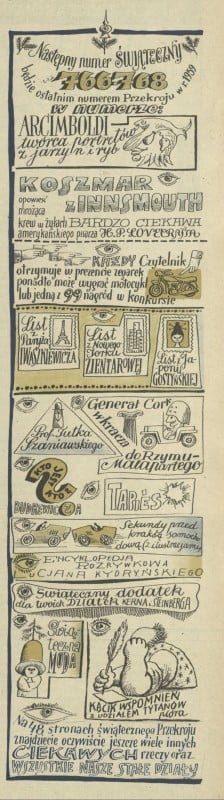 Następny numer ŚWIĄTECZNY
766-768
będzie ostatnim numerem Przekroju w r. 1959
w numerze:
ARCIMBOLDI
twórca portretów
z jarzyn i ryb
KOSZMAR
z INNSMOUTH
opowieść
mrożąca
krew w żyłach BARDZO CIEKAWA
amerykańskiego pisarza H.P. LOVECRAFTA
KAŻDY Czytelnik
otrzymuje w prezencie zegarek
ponadto może wygrać motocykl
lub jedną z 99 nagród w konkursie
List
z Paryża
IWASZKIEWICZA
List
z Nowego
Jorku
ZIENTAROWEJ
List z Ja-
ponii
GOSTYŃSKIEJ
Prof. Tutka
Szaniawskiego
Generał Cork
wkracza
do Rzymu-
Malapartego
KTO JEST
KTO
BUDREWICZA
TAPIÈS
Sekundy przed
kraksą samocho-
dową (z ilustracjami)
ENCYKLOPEDIA
ROZRYWKOWA
LUCJANA KYDRYŃSKIEGO
Świąteczny dodatek
dla twoich DZIATEK KERNA i STEINBERGA
Świą
teczna
MODA
KĄCIK WSPOMNIEŃ
Z UDZIAŁEM TYTANÓW
pióra
Na 48 stronach świątecznego Przekroju
znajdziecie oczywiście jeszcze wiele innych
CIEKAWYCH rzeczy oraz
WSZYSTKIE NASZE STAŁE DZIAŁY